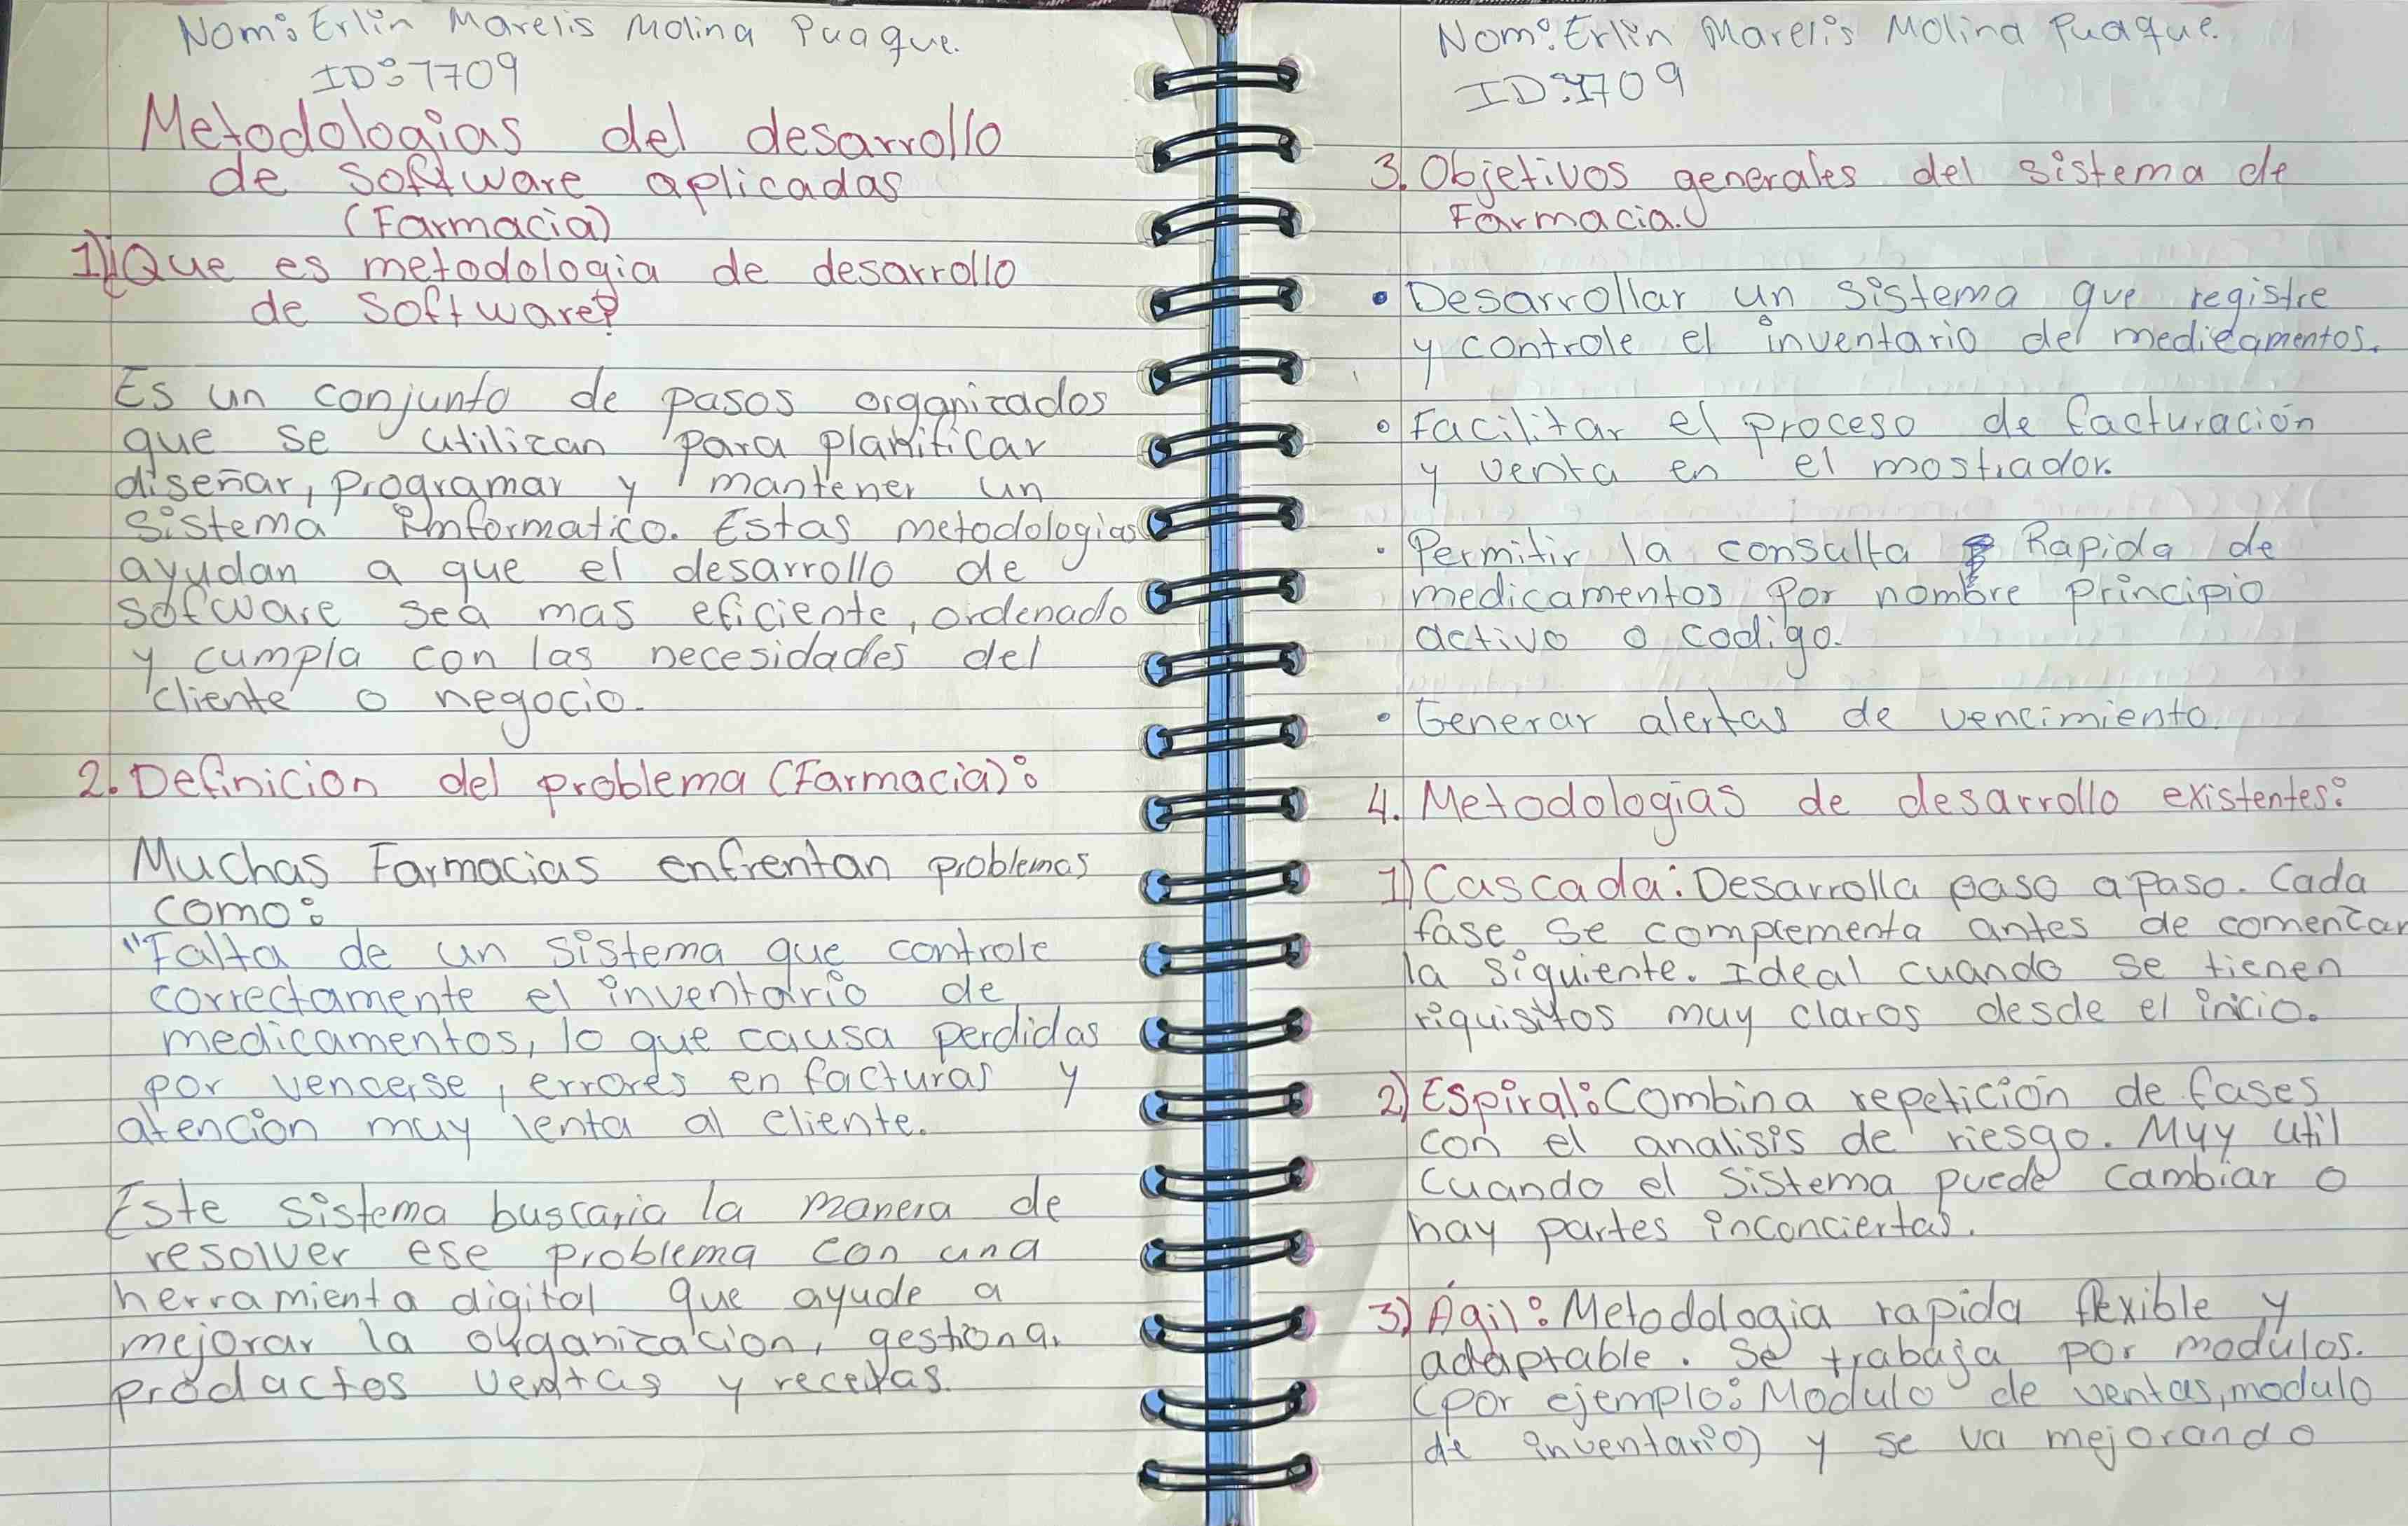 Nom: Erlin Marelis Molina Puaque.
ID: 7709
Metodologias del desarrollo
de Software aplicadas
(Farmacia)
1) ¿Que es metodologia de desarrollo
de Software?
Es un conjunto de pasos organizados
que se utilizan para planificar
diseñar, programar y mantener un
Sistema imformatico. Estas metodologias
ayudan a que el desarrollo de
sofware sea mas eficiente, ordenado
y cumpla con las necesidades del
cliente o negocio.
2. Definicion del problema (Farmacia):
Muchas Farmacias enfrentan problemas
como:
"Falta de un sistema que controle
correctamente el inventario de
medicamentos, lo que causa perdidas
por vencerse, errores en facturas y
atención muy lenta al cliente.
Este sistema buscaria la manera de
resolver ese problema con una
herramienta digital que ayude a
mejorar la organizacion, gestionar
productos ventas y recetas.
Nom: Erlin Marelis Molina Puaque.
ID: 7709
3. Objetivos generales del sistema de
Farmacia.
• Desarrollar un sistema que registre
y controle el inventario de medicamentos.
• Facilitar el proceso de facturación
y venta en el mostrador.
• Permitir la consulta Rapida de
medicamentos por nombre principio
activo o codigo.
• Generar alertas de vencimiento.
4. Metodologias de desarrollo existentes:
1) Cascada: Desarrolla paso a paso. Cada
fase se complementa antes de comenzar
la siguiente. Ideal cuando se tienen
riquisitos muy claros desde el inicio.
2) Espiral: Combina repetición de fases
con el analisis de riesgo. Muy util
cuando el sistema puede cambiar o
hay partes inconciertas.
3) Ágil: Metodologia rapida flexible y
adaptable. Se trabaja por modulos.
(por ejemplo: Modulo de ventas, modulo
de inventario) y se va mejorando